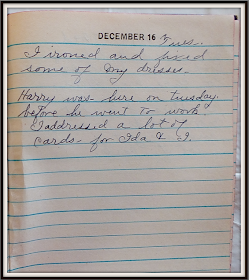 DECEMBER 16 Tues.
I ironed and fixed
some of my dresses.
Harry was here on tuesday.
before he went to work
I addressed a lot of
cards for Ida & I.